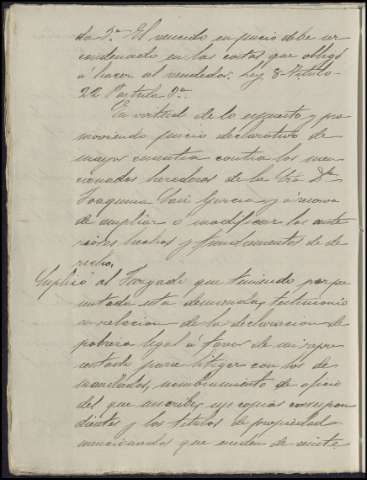 da 3ª El vencido en juicio debe ser
condenado en las costas que obligó
á hacer al vencedor; ley 8ª Título
22 Partida 3ª
En virtud de lo expuesto y pro
moviendo juicio declarativo de
mayor cuantía contra los men
cionados herederos de la Sra Dª
Joaquina José García y á reserva
de ampliar o modificar los ante
riores hechos y fundamentos de de
recho,
Suplico al Juzgado que teniendo por pre
sentada esta demanda, testimonio
en relacion de la declaracion de
pobreza legal á favor de mi repre
sentado para litigar con los de
mandados, nombramiento de oficio
del que suscribe, sus copias correspon
dientes y los titulos de propiedad
mencionados que exceden de veinte